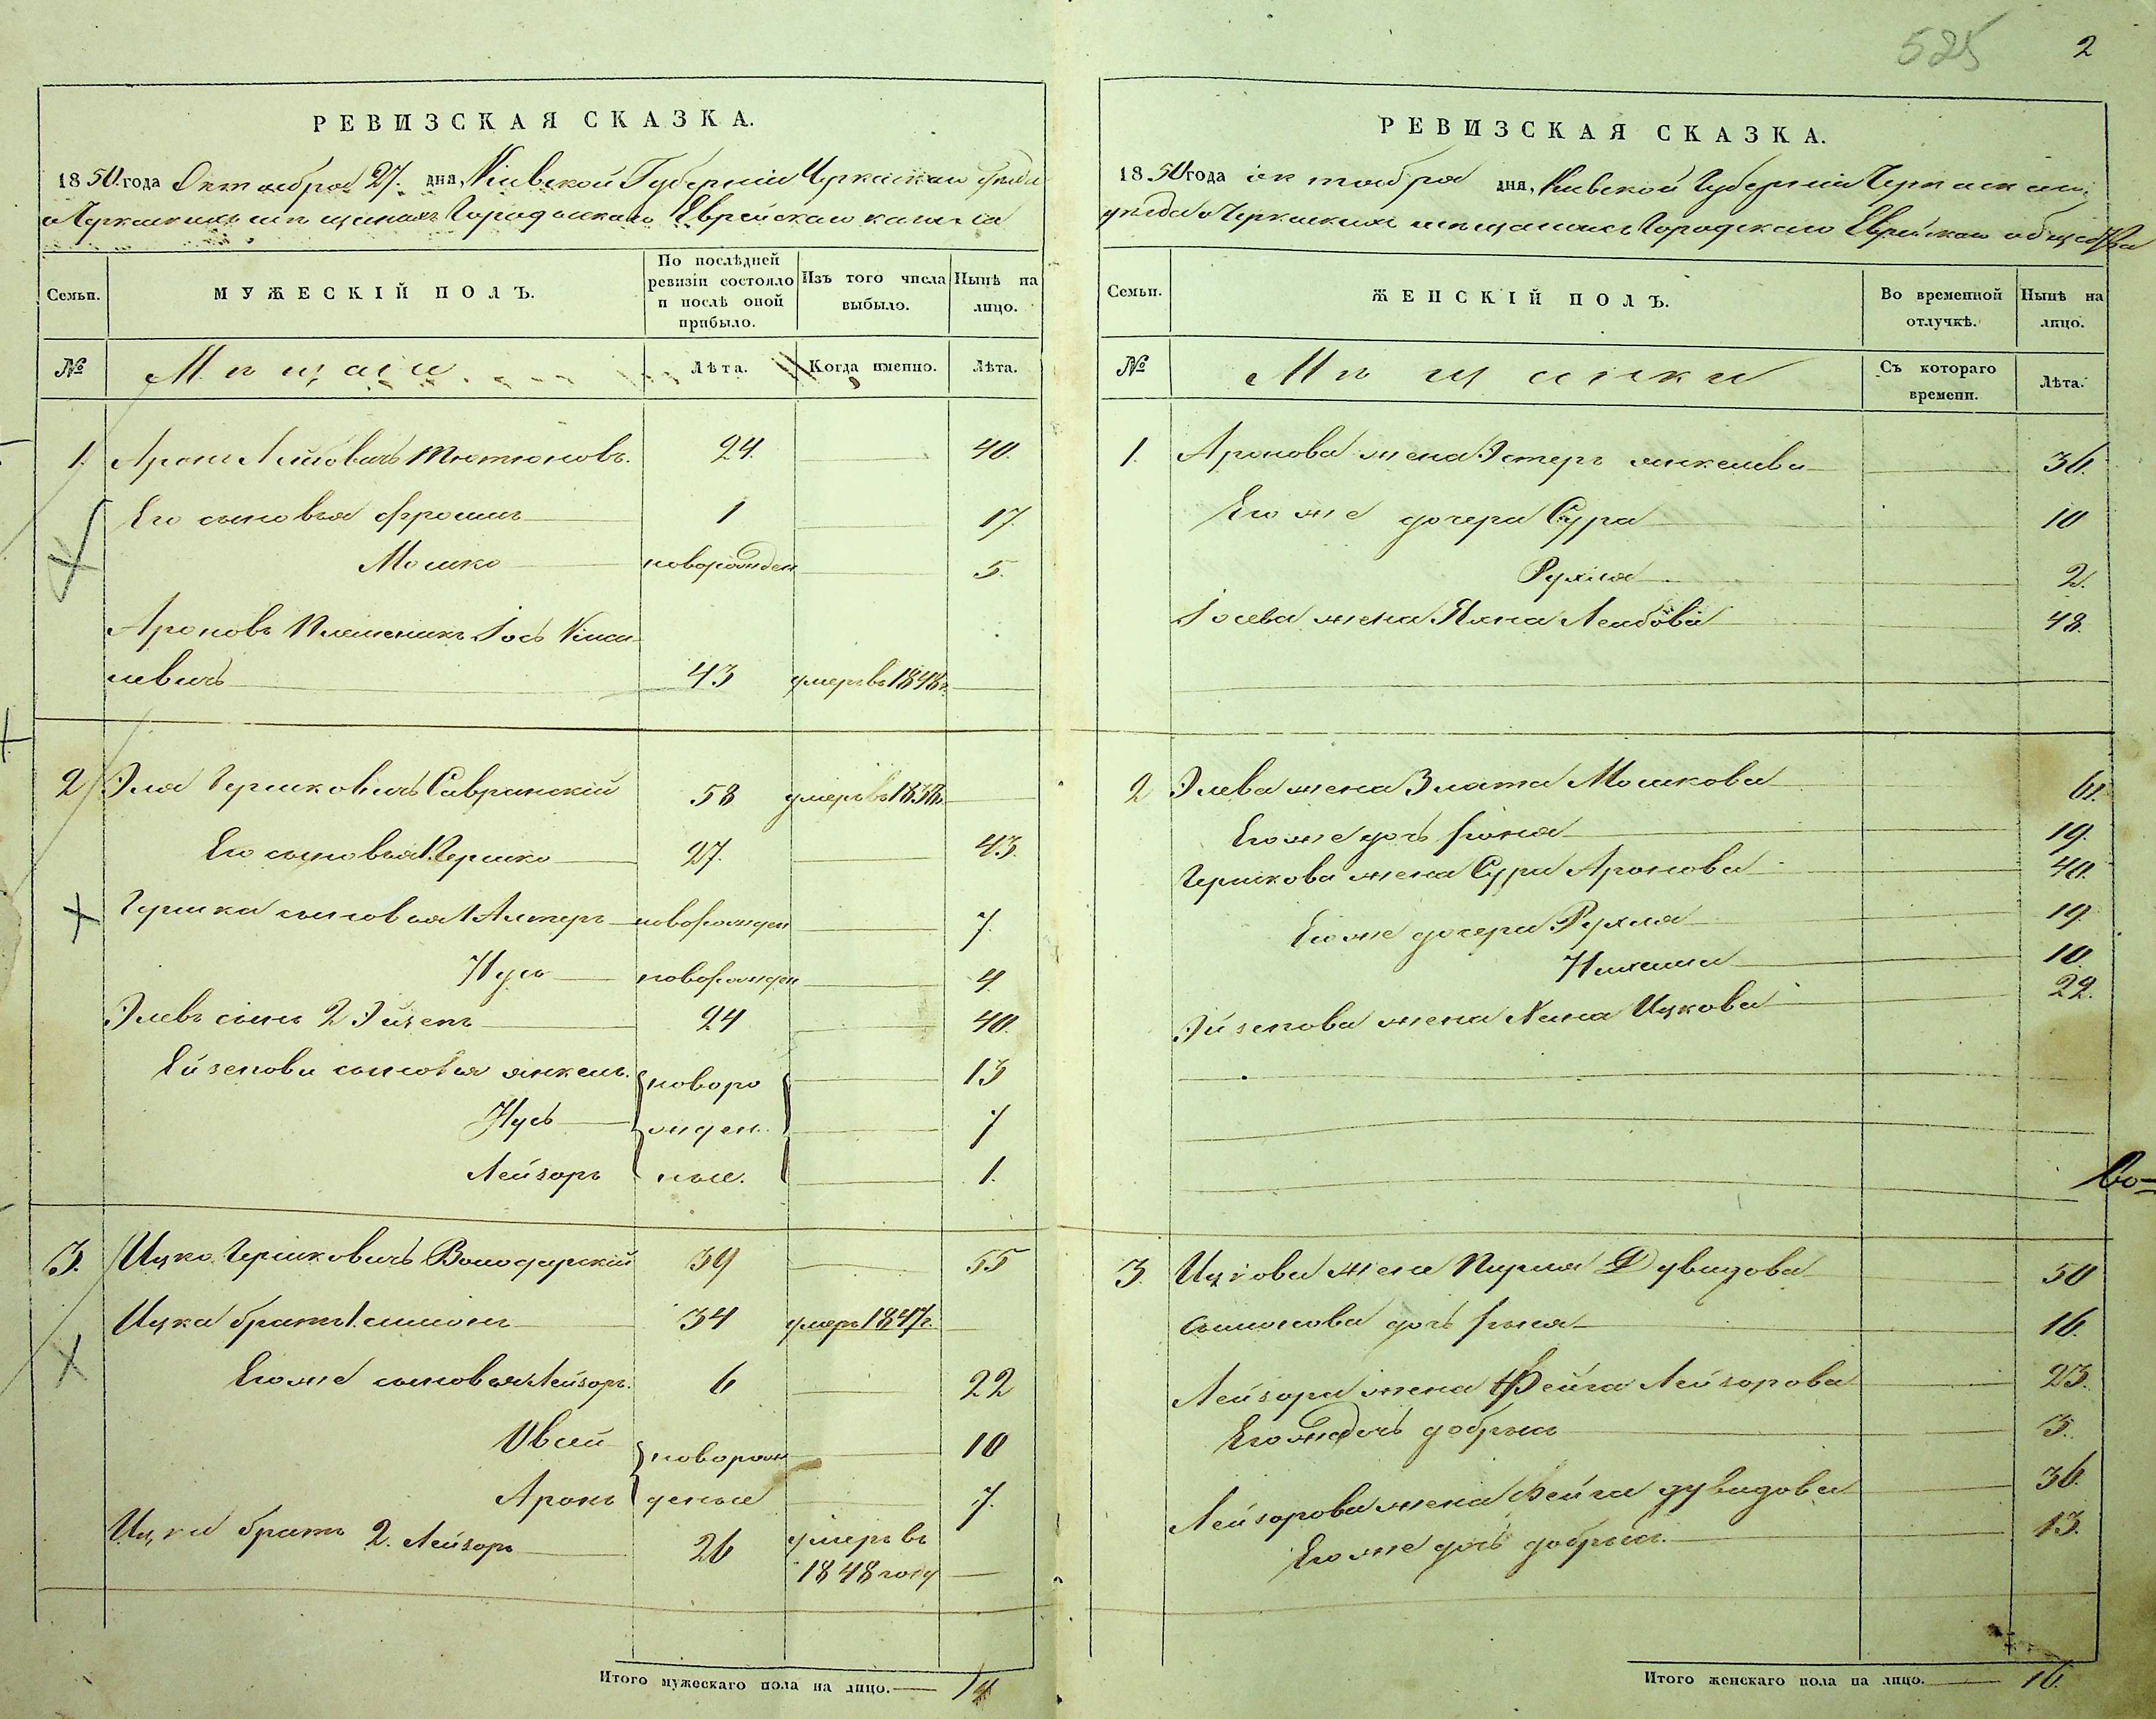 525 2
РЕВИЗСКАЯ СКАЗКА.
1850 года Октября 27. дня, Кіевской Губерніи Черкаскаго уезда
о Черкаскихъ мещанахъ Городскаго Еврейскаго
Семьи.
МУЖЕСКІЙ ПОЛЪ.
По последней ревизіи состояло и после оной прибыло.
Изъ того числа выбыло.
Ныне на лицо.
№
Мещане
Лета.
Когда именно.
Лета.
1. Аронъ Лейбовичъ Тютюновъ. 24. 40.
Его сыновья Фроимъ 1 17
Мошко новорожден 5.
Ароновъ Племеникъ Іось Кіса
левичъ 43 умеръ въ 1848 г.
2 Эля Гершковичъ Савранскій 58 умеръ въ 1838
Его сыновья 1. Гершко 27. 43.
Гершка сыновья 1 Алтеръ новорожден 7.
Нусь новорожден 4
Элевъ сынъ 2 Эйзенъ 24 40.
Ейзенова сыновья Янкель. новоро 13
Нусь жден. 7
Лейзоръ ные. 1.
3. Ицко Гершковичъ Володарскій 39 55
Ицка братъ 1. Симонъ 34 умеръ 1847 г.
Его же сыновья Лейзоръ. 6 22
новорож 10
Аронъ деные 7.
Ицка братъ 2. Лейзоръ 26 умеръ въ
1848 году
Итого мужескаго пола на лицо. 14
РЕВИЗСКАЯ СКАЗКА.
1850 года октября дня, Кіевской Губерніи Черкаскаго
уезда о Черкаскихъ мещанахъ Городскаго Еврейскаго общества
Семьи.
ЖЕНСКІЙ ПОЛЪ.
Во временной отлучкѣ.
Нынѣ на лицо.
№
Мещанки
Съ котораго времени.
Лѣта.
1. Аронова жена Эстеръ Янкелева 36.
Его же дочери Сура 10
Рухля 2.
Іосева жена Хана Лейбова 48.
2 Элева жена Злата Мошкова 61.
Его же дочь 19.
Гершкова жена Сура Аронова 40.
Его же дочери Рухля 19.
10.
Эйзенова жена Хана Ицкова 22.
во-
3. Ицкова жена Перля Дувидова 50
Симонова дочь 16.
Лейзора жена Фейга Лейзорова 23.
Его же дочь добрыш 3.
Лейзорова жена Фейга дувидова 36.
Его же дочь добрыш. 13.
Итого женскаго пола на лицо. 16.